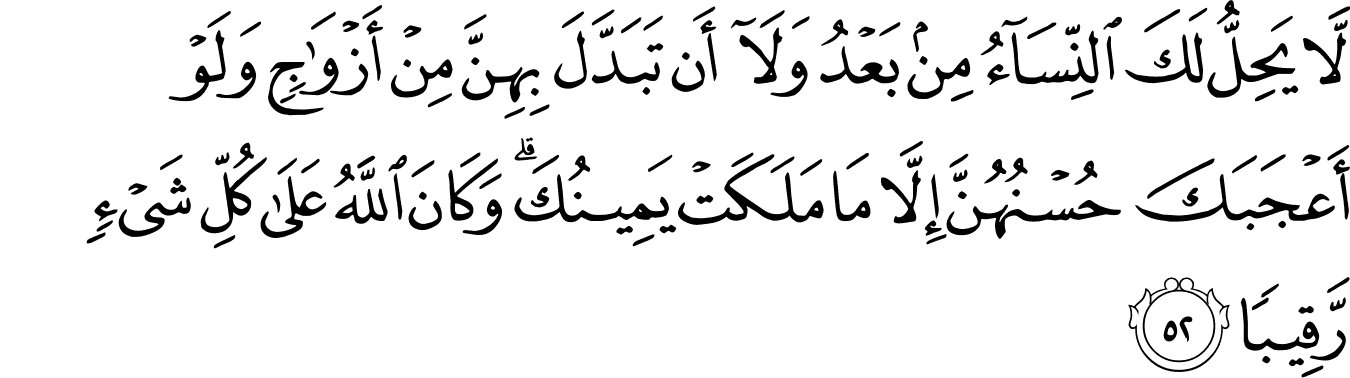 لَّا يَحِلُّ لَكَ ٱلنِّسَآءُ مِنۢ بَعْدُ وَلَآ أَن تَبَدَّلَ بِهِنَّ مِنْ أَزْوَٰجٍ وَلَوْ
أَعْجَبَكَ حُسْنُهُنَّ إِلَّا مَا مَلَكَتْ يَمِينُكَ ۗ وَكَانَ ٱللَّهُ عَلَىٰ كُلِّ شَىْءٍ
رَّقِيبًا ٥٢